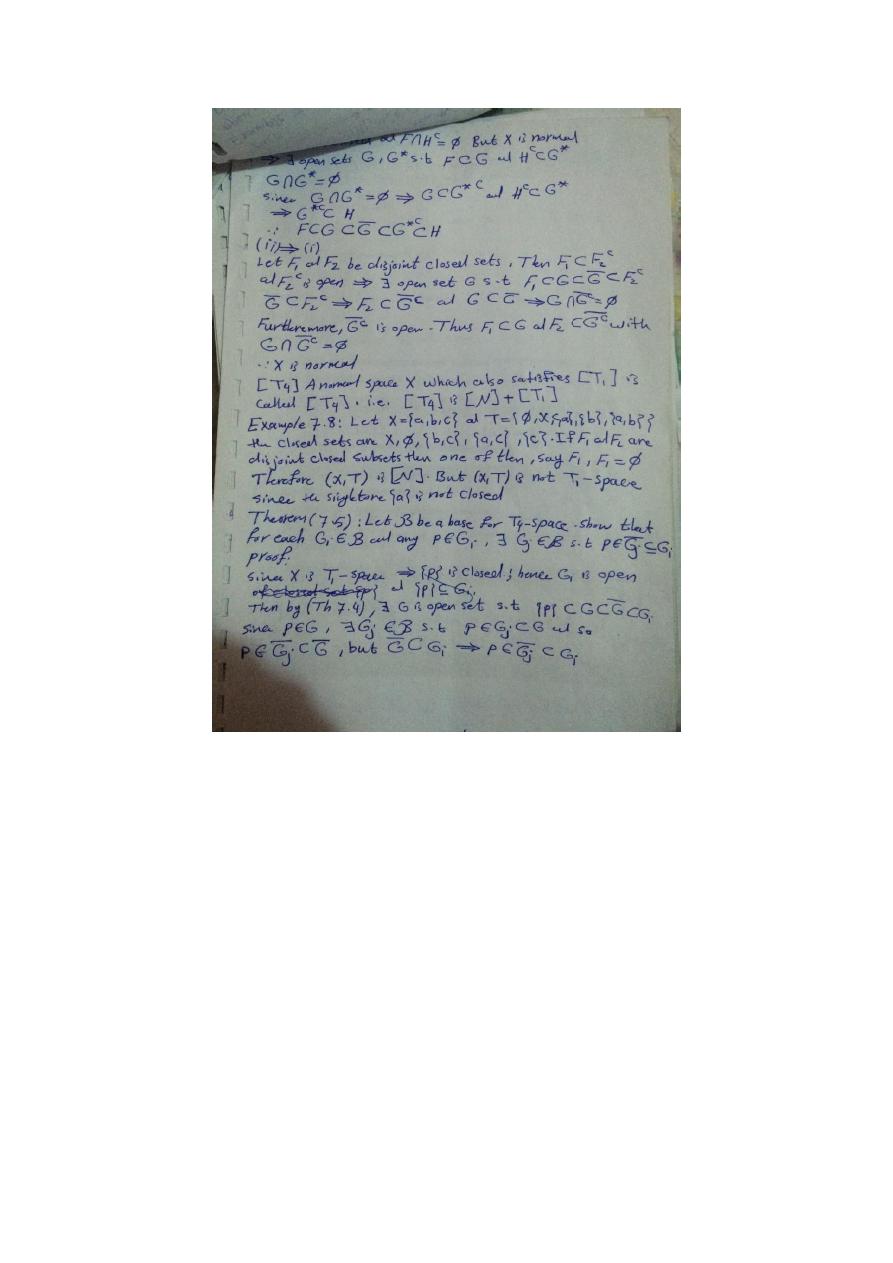 F∩Hᶜ=∅ But X is normal
⇒ ∃ open sets G, G* s.t F⊂G ad Hᶜ⊂G*
G∩G*=∅
since G∩G*=∅ ⇒ G⊂G*ᶜ ad Hᶜ⊂G*
⇒ G*ᶜ⊂ H
∴ F⊂G⊂G̅⊂G*ᶜ⊂H
(ii)⇒(i)
Let F₁ ad F₂ be disjoint closed sets, Then F₁⊂F₂ᶜ
ad F₂ᶜ is open ⇒ ∃ open set G s.t F₁⊂G⊂G̅⊂F₂ᶜ
G̅⊂F₂ᶜ ⇒ F₂⊂G̅ᶜ ad G⊂G̅ ⇒ G∩G̅ᶜ=∅
Furtheremore, G̅ᶜ is open. Thus F₁⊂G ad F₂⊂G̅ᶜ with
G∩G̅ᶜ=∅
∴ X is normal
[T4] A normal space X which also satisfies [T1] is
called [T4]. i.e. [T4] is [N]+[T1]
Example 7.8: Let X={a,b,c} ad T={∅,X,{a},{b},{a,b}}
the closed sets are X,∅,{b,c},{a,c},{c}. If F₁ ad F₂ are
disjoint closed subsets then one of then, say F₁, F₁=∅
Therefore (X,T) is [N]. But (X,T) is not T₁-space
since the singltone {a} is not closed
Theorem(7.5): Let B be a base for T₄-space. show that
for each Gᵢ∈B ad any p∈Gᵢ, ∃ Gⱼ∈B s.t p∈G̅ⱼ⊆Gᵢ
proof:
since X is T₁-space ⇒ {p} is closed; hence Gᵢ is open
ad {p}⊆Gᵢ.
Then by (Th 7.4), ∃ G is open set s.t {p}⊂G⊂G̅⊂Gᵢ
since p∈G, ∃Gⱼ∈B s.t p∈Gⱼ⊂G ad so
p∈G̅ⱼ⊂G̅, but G̅⊂Gᵢ ⇒ p∈G̅ⱼ⊂Gᵢ